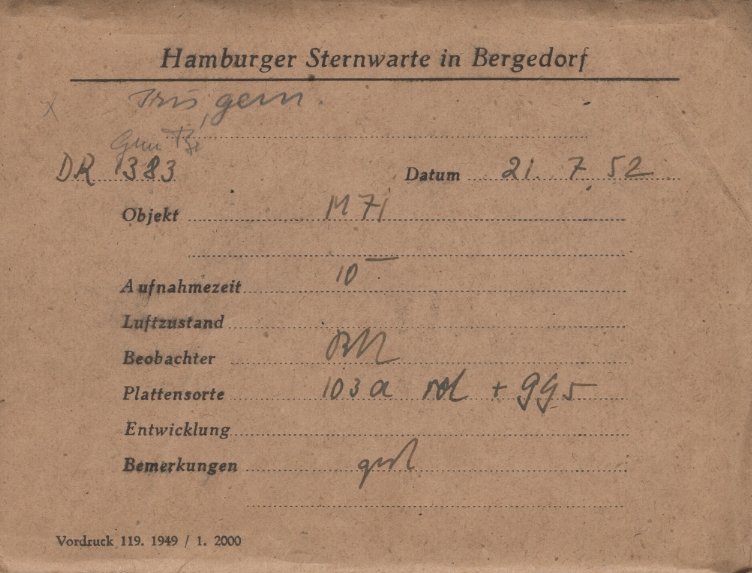 Hamburger Sternwarte in Bergedorf
Iris, gem.
DR 1383 Datum 21. 7. 52
Objekt M 71
Aufnahmezeit 10
Luftzustand
Beobachter
Plattensorte 103 a rot + GG 5
Entwicklung
Bemerkungen gut
Vordruck 119. 1949 / 1. 2000